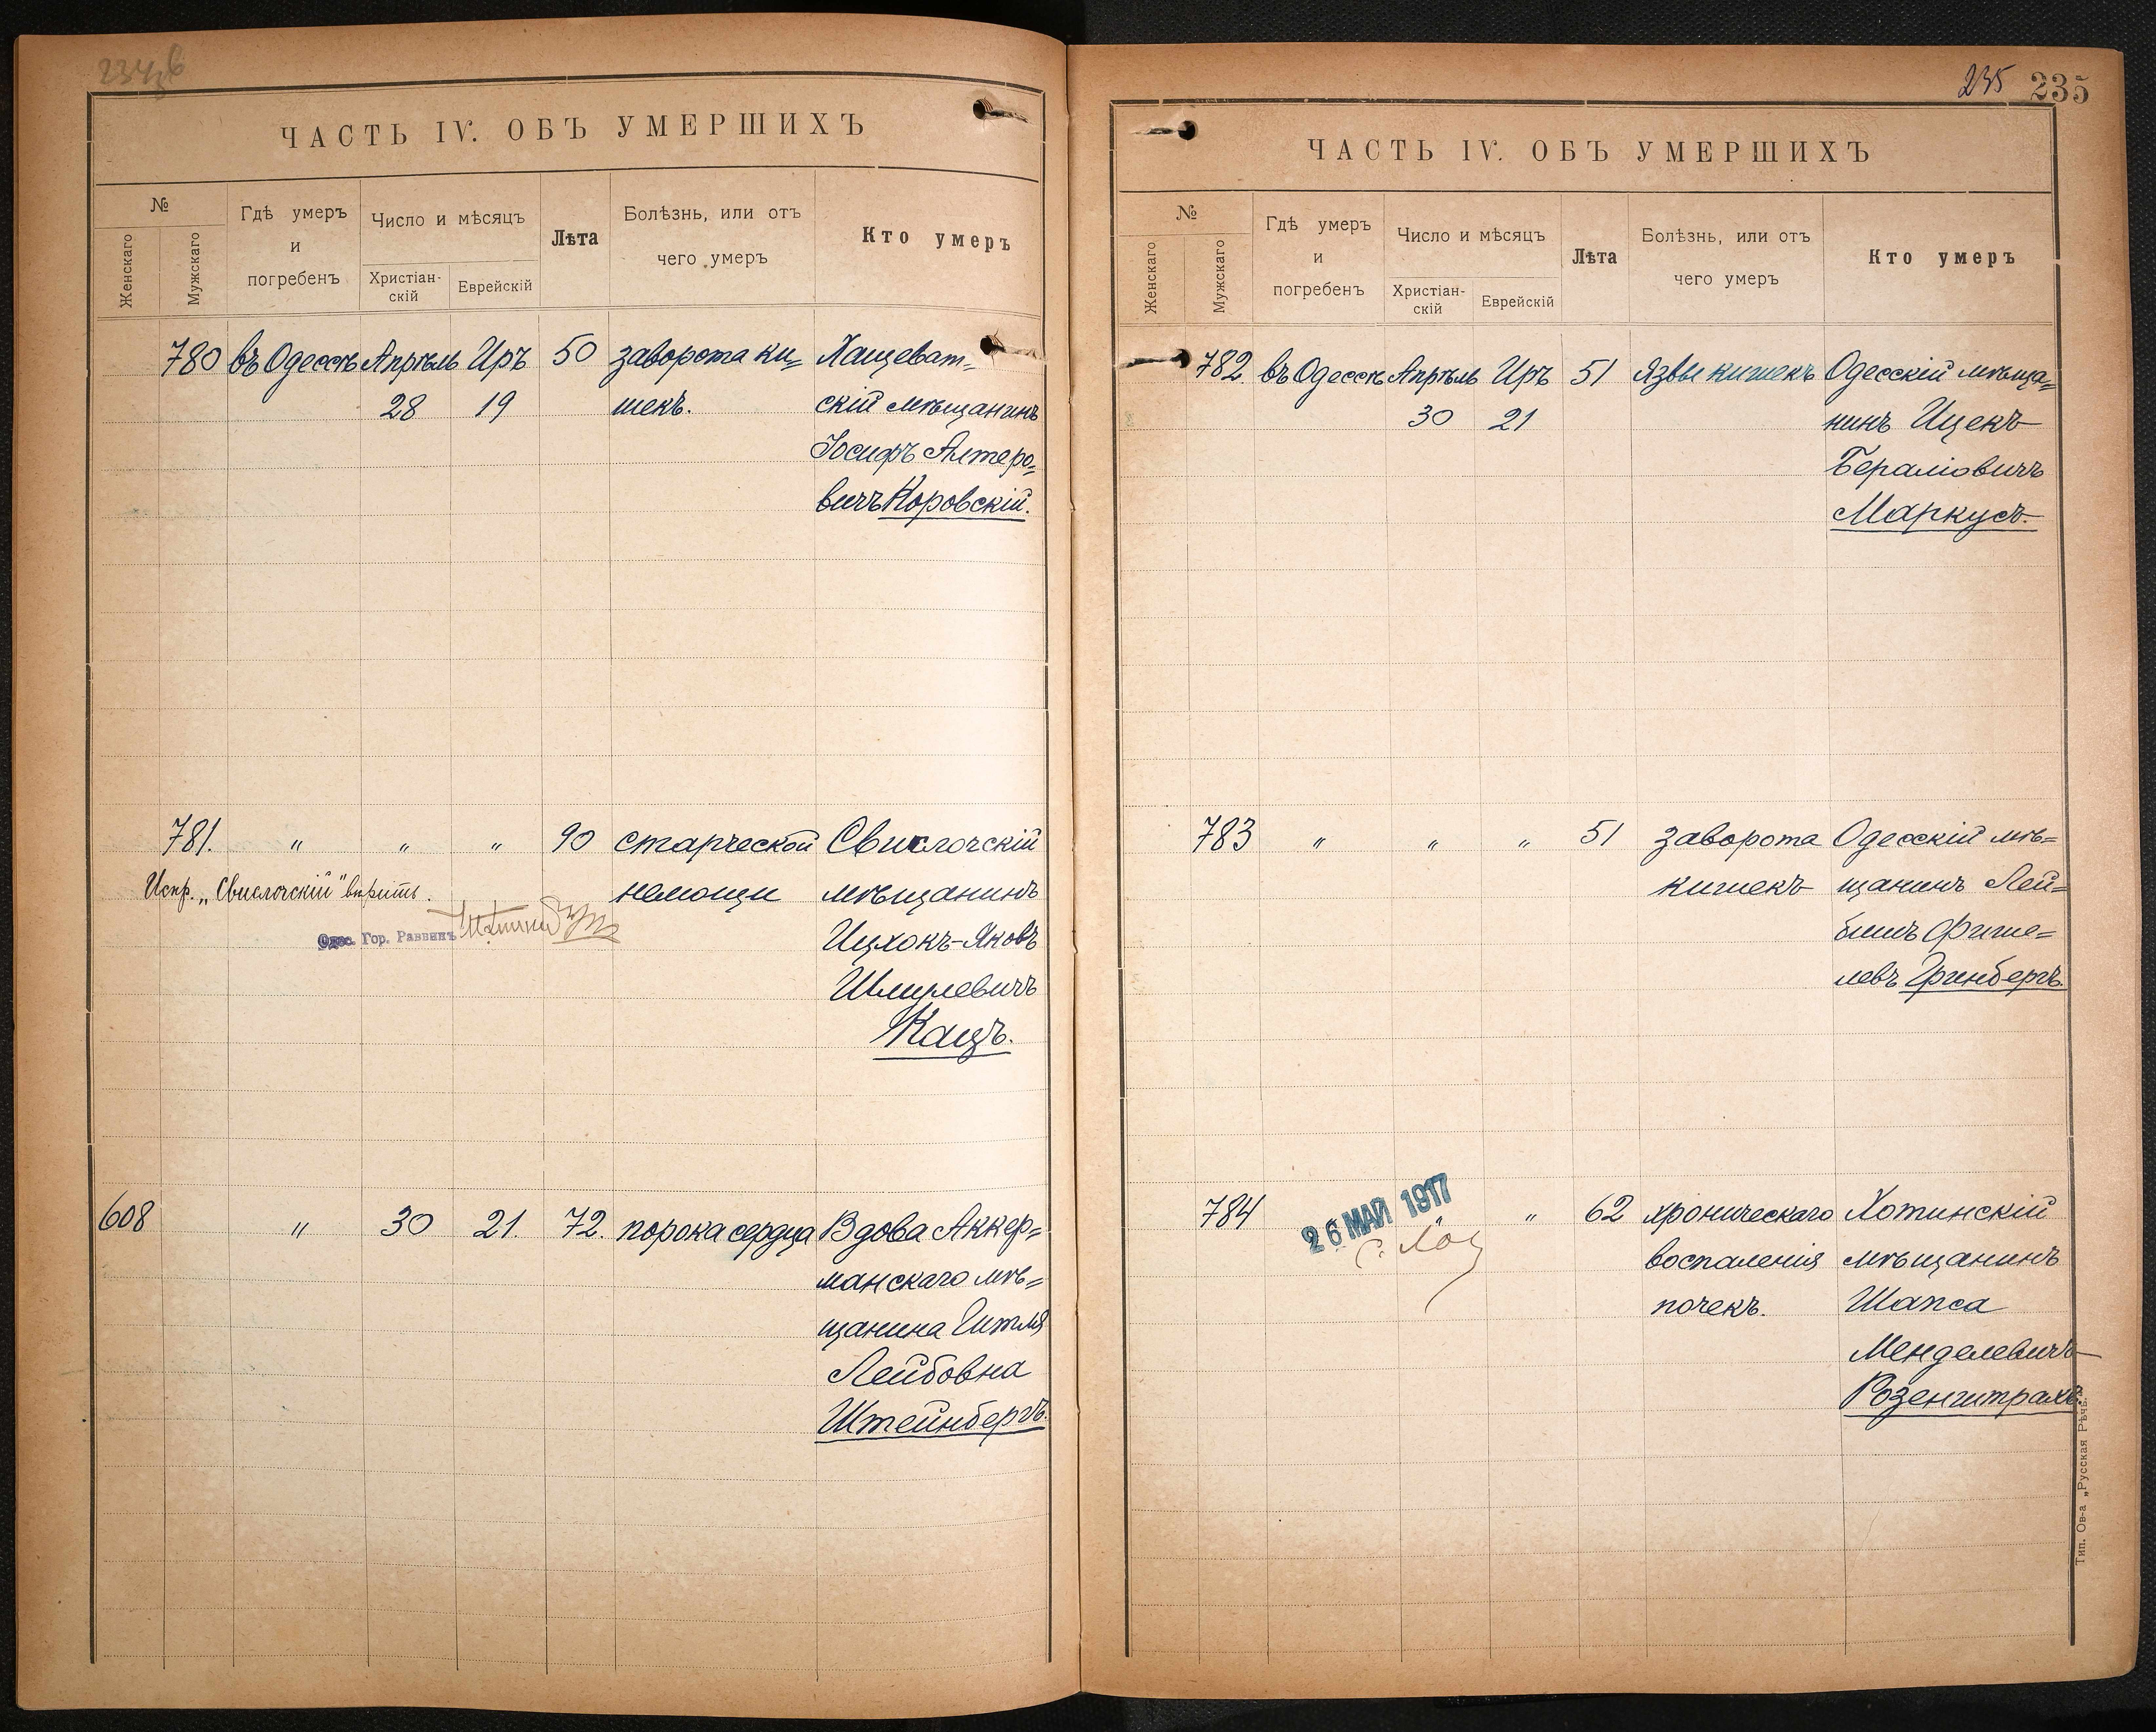 ЧАСТЬ IV. ОБЪ УМЕРШИХЪ
№
Женскаго
Мужскаго
Гдѣ умеръ
и
погребенъ
Число и мѣсяцъ
Христіан-
скій
Еврейскій
Лѣта
Болѣзнь, или отъ
чего умеръ
Кто умеръ
780 въ Одессѣ Апрѣль Иръ 50 заворота ки= Хащеват=
28 19 шекъ. скій мѣщанинъ
Іосифъ Алтеро=
вичъ Коровскій.
781. " " " 90 старческой Свислочскій
Испр. „Свислочскій" вѣрить. немощи мѣщанинъ
Одес. Гор. Раввинъ Ицхокъ-Яковъ
Шмулевичъ
Кацъ.
608 " 30 21. 72. порока сердца Вдова Аккер=
манскаго мѣ=
щанина Гитля
Лейбовна
Штейнбергъ.
235 235
ЧАСТЬ IV. ОБЪ УМЕРШИХЪ
№
Женскаго
Мужскаго
Гдѣ умеръ
и
погребенъ
Число и мѣсяцъ
Христіан-
скій
Еврейскій
Лѣта
Болѣзнь, или отъ
чего умеръ
Кто умеръ
782. въ Одессѣ Апрѣль Иръ 51 Язвы кишекъ Одесскій мѣща=
30 21 нинъ Ицекъ
Бераліовичъ
Маркусъ.
783 " " " 51 заворота Одесскій мѣ=
кишекъ щанинъ Лей=
бишъ Фише=
левъ Гринбергъ.
784 26 МАЙ 1917 " 62 хроническаго Хотинскій
воспаленія мѣщанинъ
почекъ. Шапса
Менделевичъ
Розенштрахъ.
Тип. Ов-а „Русская Рѣчь".